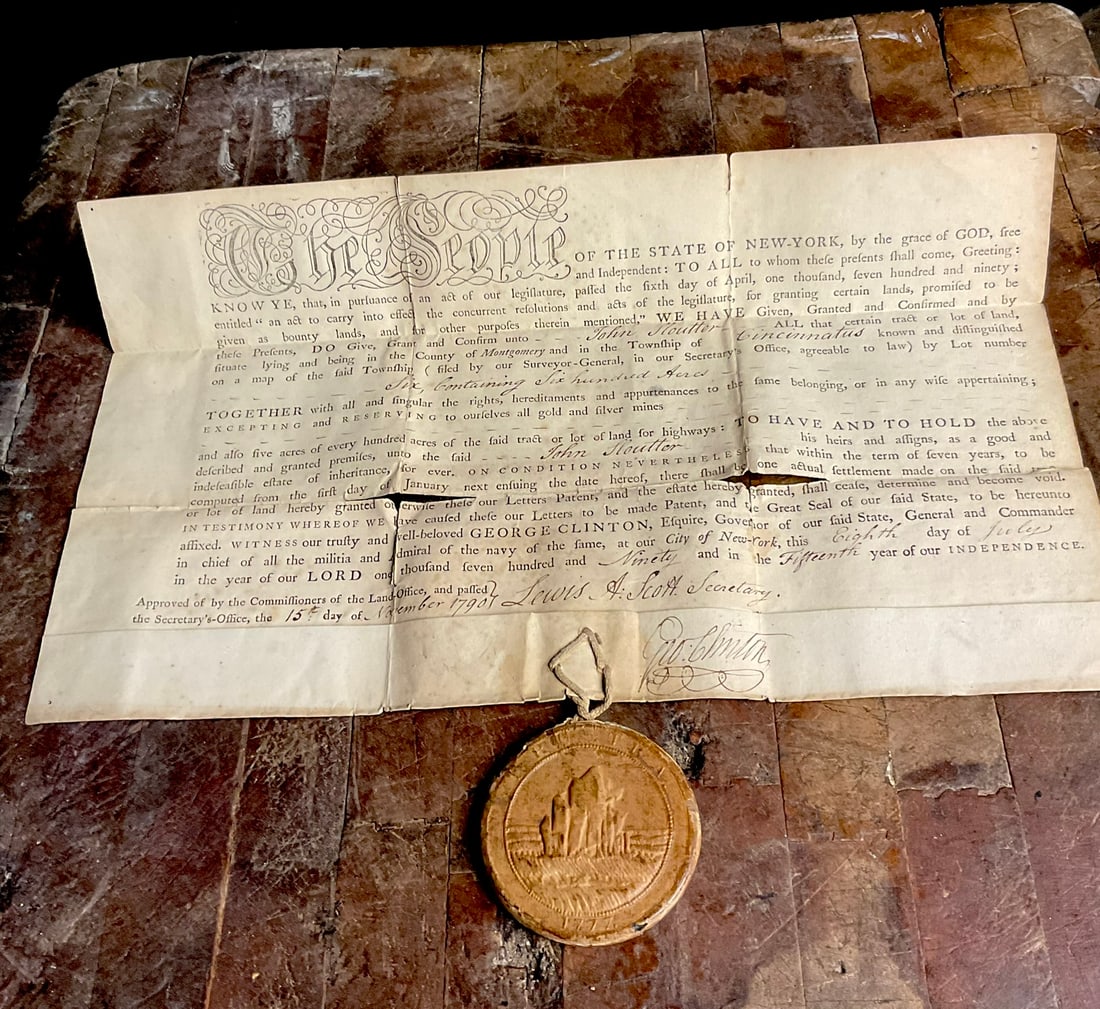 The People OF THE STATE OF NEW-YORK, by the grace of GOD, free
and Independent: TO ALL to whom theſe preſents ſhall come, Greeting:
KNOW YE, that, in purſuance of an act of our legiſlature, paſſed the ſixth day of April, one thouſand, ſeven hundred and ninety;
entitled “ an act to carry into effect the concurrent reſolutions and acts of the legiſlature, for granting certain lands, promiſed to be
given as bounty lands, and for other purpoſes therein mentioned,” WE HAVE Given, Granted and Confirmed and by
theſe Preſents, DO Give, Grant and Confirm unto John Stoutter ALL that certain tract or lot of land,
ſituate lying and being in the County of Montgomery and in the Townſhip of Cincinnatus known and diſtinguiſhed
on a map of the ſaid Townſhip ( filed by our Surveyor-General, in our Secretary's Office, agreeable to law) by Lot number
Six Containing Six hundred Acres
TOGETHER with all and ſingular the rights, hereditaments and appurtenances to the ſame belonging, or in any wiſe appertaining;
EXCEPTING and RESERVING to ourſelves all gold and ſilver mines
and alſo five acres of every hundred acres of the ſaid tract or lot of land for highways: TO HAVE AND TO HOLD the above
deſcribed and granted premiſes, unto the ſaid John Stoutter his heirs and aſſigns, as a good and
indefeaſible eſtate of inheritance, for ever. ON CONDITION NEVERTHELESS that within the term of ſeven years, to be
computed from the firſt day of January next enſuing the date hereof, there ſhall be one actual ſettlement made on the ſaid
or lot of land hereby granted otherwiſe theſe our Letters Patent, and the eſtate hereby granted, ſhall ceaſe, determine and become void.
IN TESTIMONY WHEREOF WE have cauſed theſe our Letters to be made Patent, and the Great Seal of our ſaid State, to be hereunto
affixed. WITNESS our truſty and well-beloved GEORGE CLINTON, Eſquire, Governor of our ſaid State, General and Commander
in chief of all the militia and admiral of the navy of the ſame, at our City of New-York, this Eighth day of July
in the year of our LORD one thouſand ſeven hundred and Ninety and in the Fifteenth year of our INDEPENDENCE.
Approved of by the Commiſſioners of the Land Office, and paſſed
the Secretary's-Office, the 15th day of November 1790
Lewis A. Scott Secretary.
Geo: Clinton